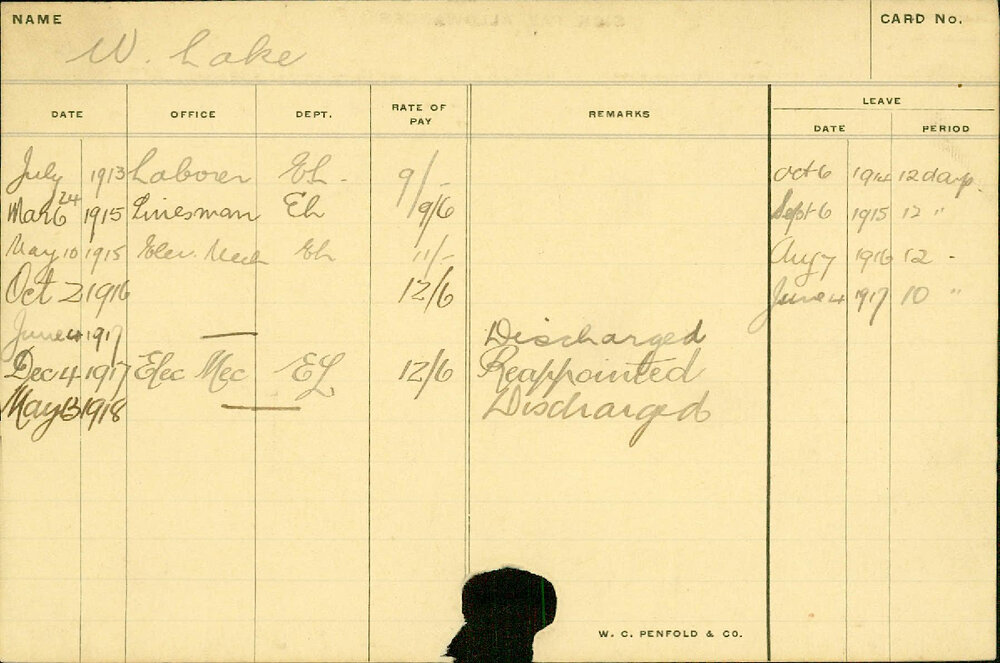 NAME
CARD No.
W. Lake
LEAVE
DATE OFFICE DEPT. RATE OF PAY REMARKS DATE PERIOD
July 1913 Laborer EL. 9/- Oct 6 1914 12 days.
24
Mar 6 1915 Linesman EL 9/6 Sept 6 1915 12 "
May 10 1915 Elec. Mech EL 11/- Aug 7 1916 12 -
Oct 2 1916 12/6 June 4 1917 10 "
June 4 1917 — Discharged
Dec 4 1917 Elec Mec EL 12/6 Reappointed
May 13 1918 — Discharged
W. C. PENFOLD & CO.